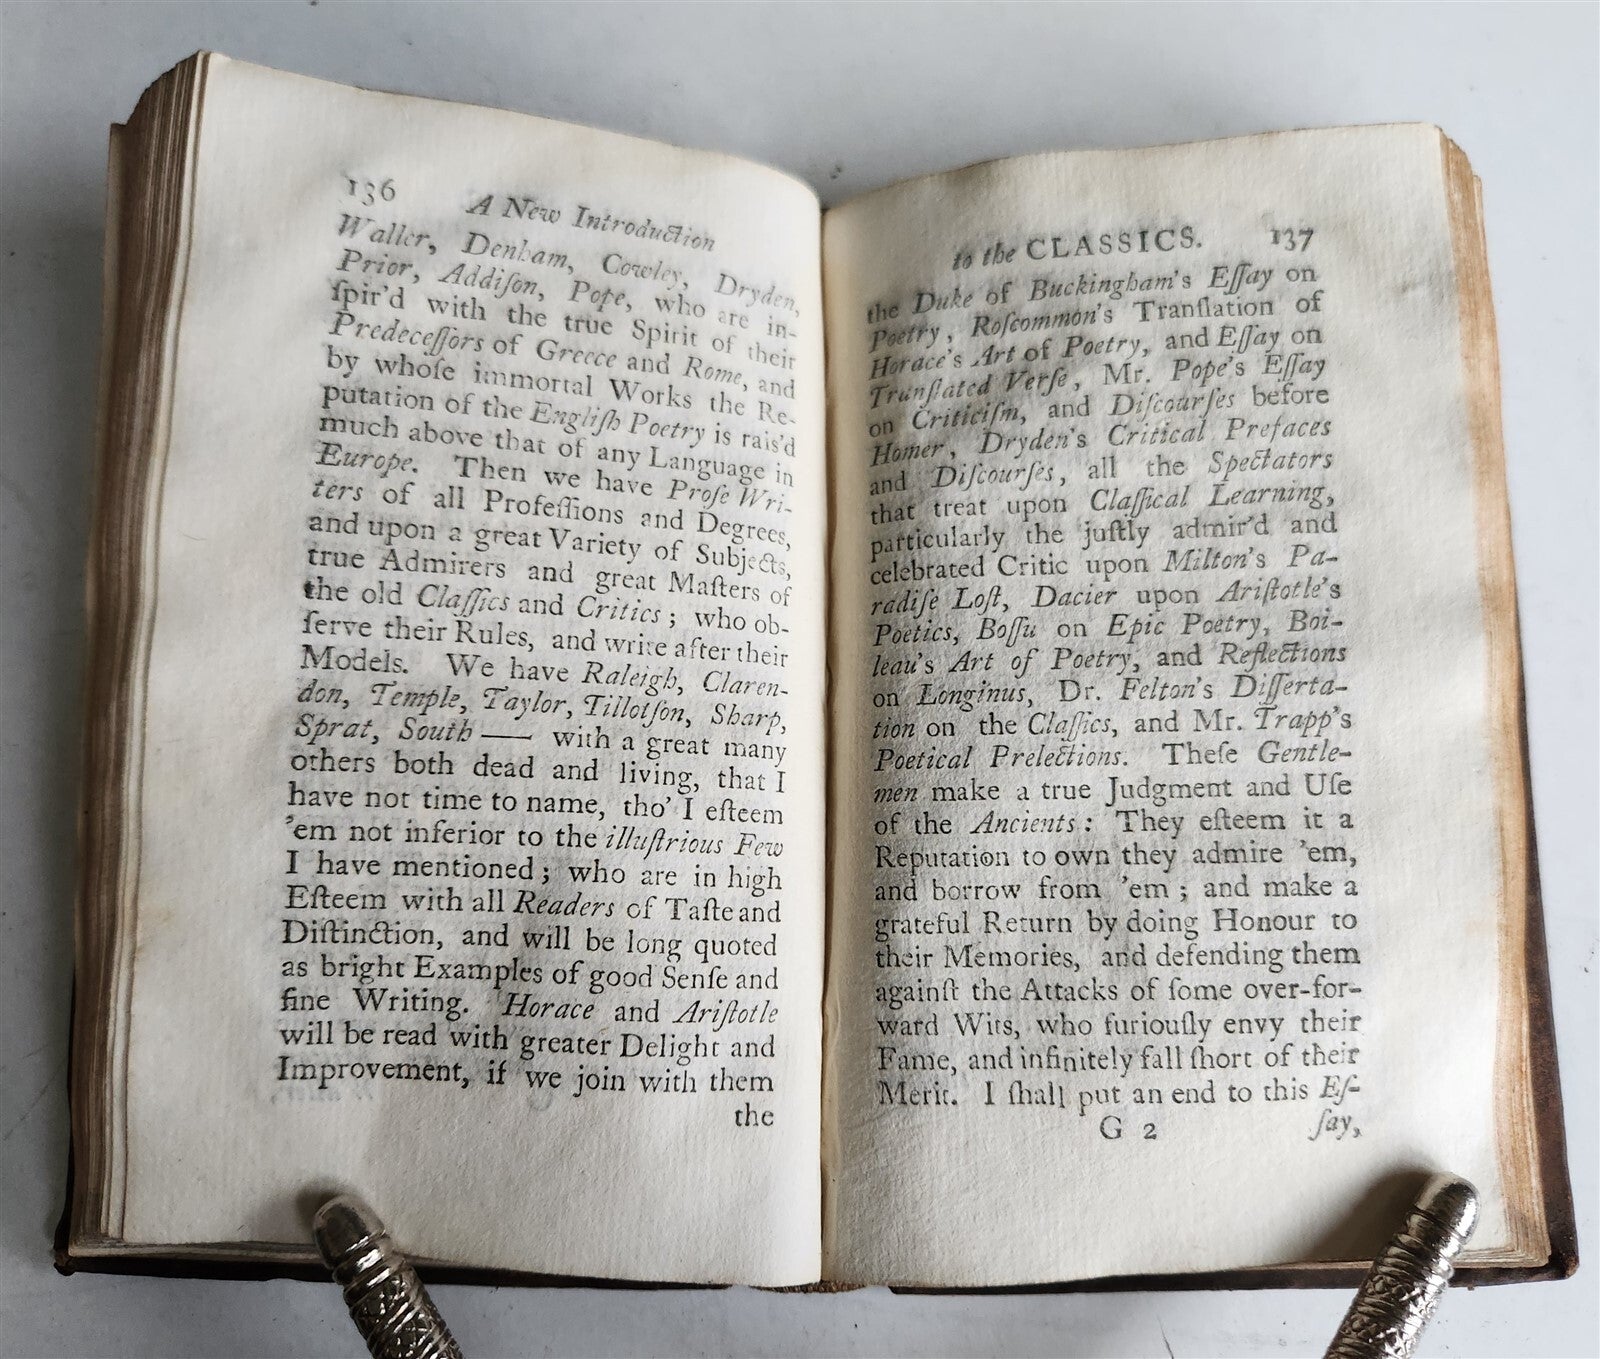 136 A New Introduction
Waller, Denham, Cowley, Dryden,
Prior, Addiſon, Pope, who are in-
ſpir'd with the true Spirit of their
Predeceſſors of Greece and Rome, and
by whoſe immortal Works the Re-
putation of the Engliſh Poetry is rais'd
much above that of any Language in
Europe. Then we have Proſe Wri-
ters of all Profeſſions and Degrees,
and upon a great Variety of Subjects,
true Admirers and great Maſters of
the old Claſſics and Critics; who ob-
ſerve their Rules, and write after their
Models. We have Raleigh, Claren-
don, Temple, Taylor, Tillotſon, Sharp,
Sprat, South —— with a great many
others both dead and living, that I
have not time to name, tho' I eſteem
'em not inferior to the illuſtrious Few
I have mentioned; who are in high
Eſteem with all Readers of Taſte and
Diſtinction, and will be long quoted
as bright Examples of good Senſe and
fine Writing. Horace and Ariſtotle
will be read with greater Delight and
Improvement, if we join with them
the
to the CLASSICS. 137
the Duke of Buckingham's Eſſay on
Poetry, Roſcommon's Tranſlation of
Horace's Art of Poetry, and Eſſay on
Tranſlated Verſe, Mr. Pope's Eſſay
on Criticiſm, and Diſcourſes before
Homer, Dryden's Critical Prefaces
and Diſcourſes, all the Spectators
that treat upon Claſſical Learning,
particularly the juſtly admir'd and
celebrated Critic upon Milton's Pa-
radiſe Loſt, Dacier upon Ariſtotle's
Poetics, Boſſu on Epic Poetry, Boi-
leau's Art of Poetry, and Reflections
on Longinus, Dr. Felton's Diſſerta-
tion on the Claſſics, and Mr. Trapp's
Poetical Prelections. Theſe Gentle-
men make a true Judgment and Uſe
of the Ancients: They eſteem it a
Reputation to own they admire 'em,
and borrow from 'em; and make a
grateful Return by doing Honour to
their Memories, and defending them
againſt the Attacks of ſome over-for-
ward Wits, who furiouſly envy their
Fame, and infinitely fall ſhort of their
Merit. I ſhall put an end to this Eſ-
G 2 ſay,